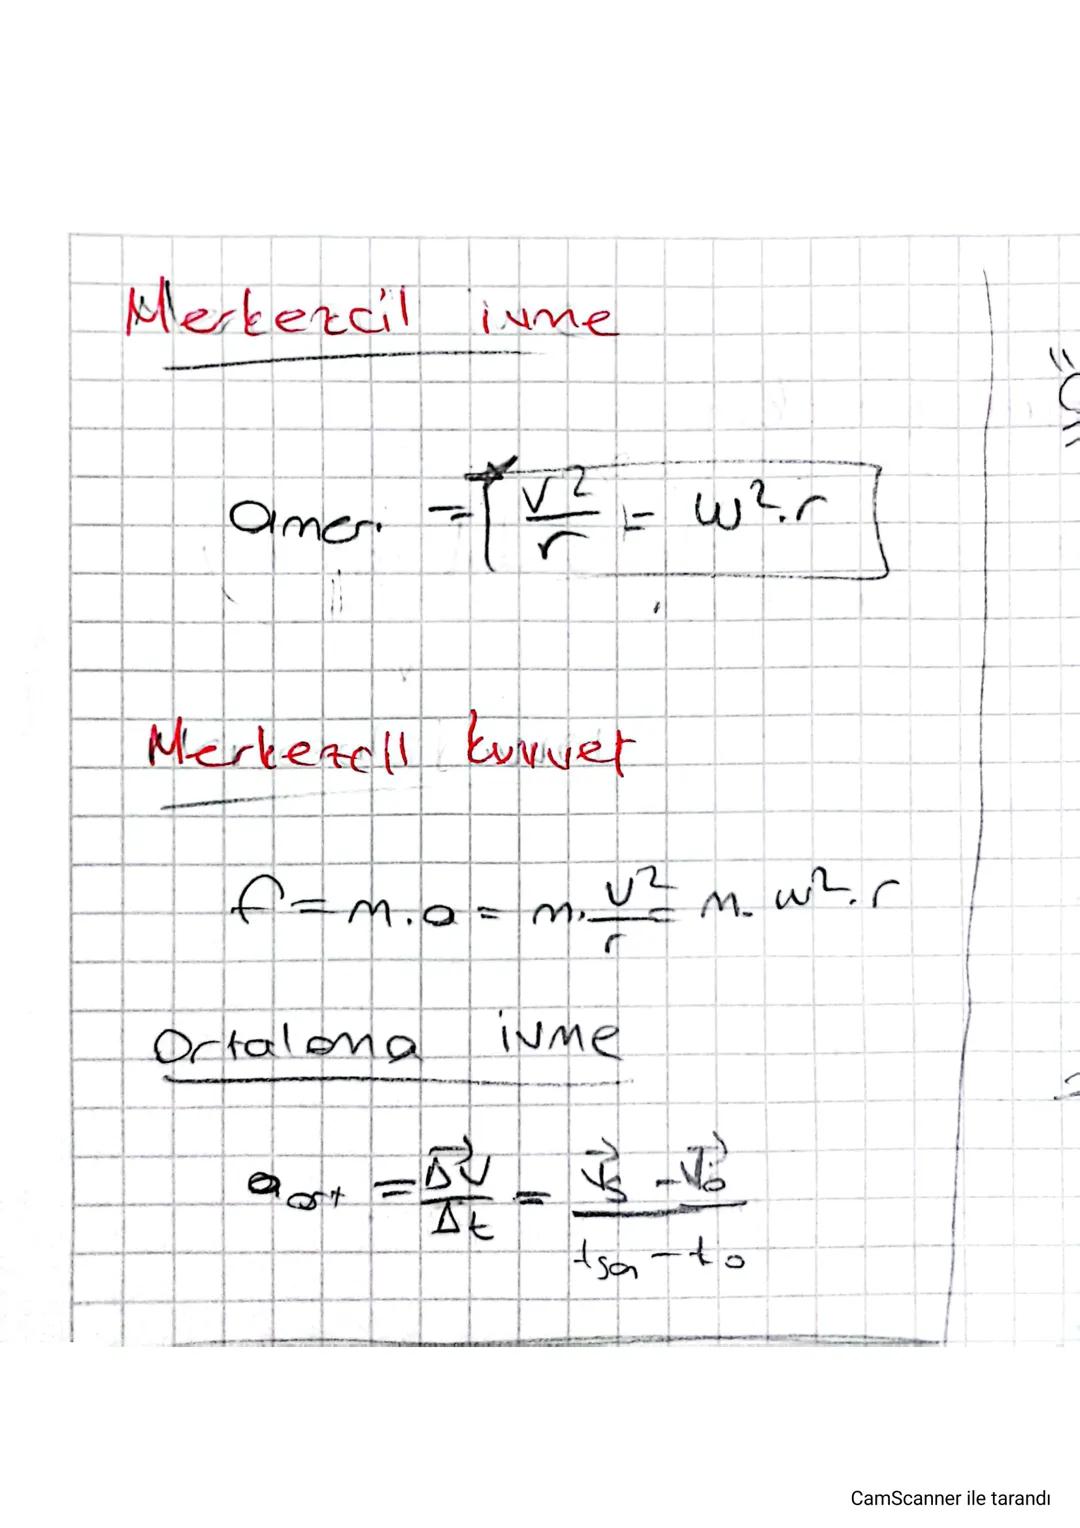 Merkezcil ivme
amer. = v²/r = w².r
Merkezcil kuvvet
f = m.a = m.v²/r = m.w².r
Ortalama ivme
aort = Δv⃗/Δt = v⃗s - v⃗o / tson - to
CamScanner ile tarandı